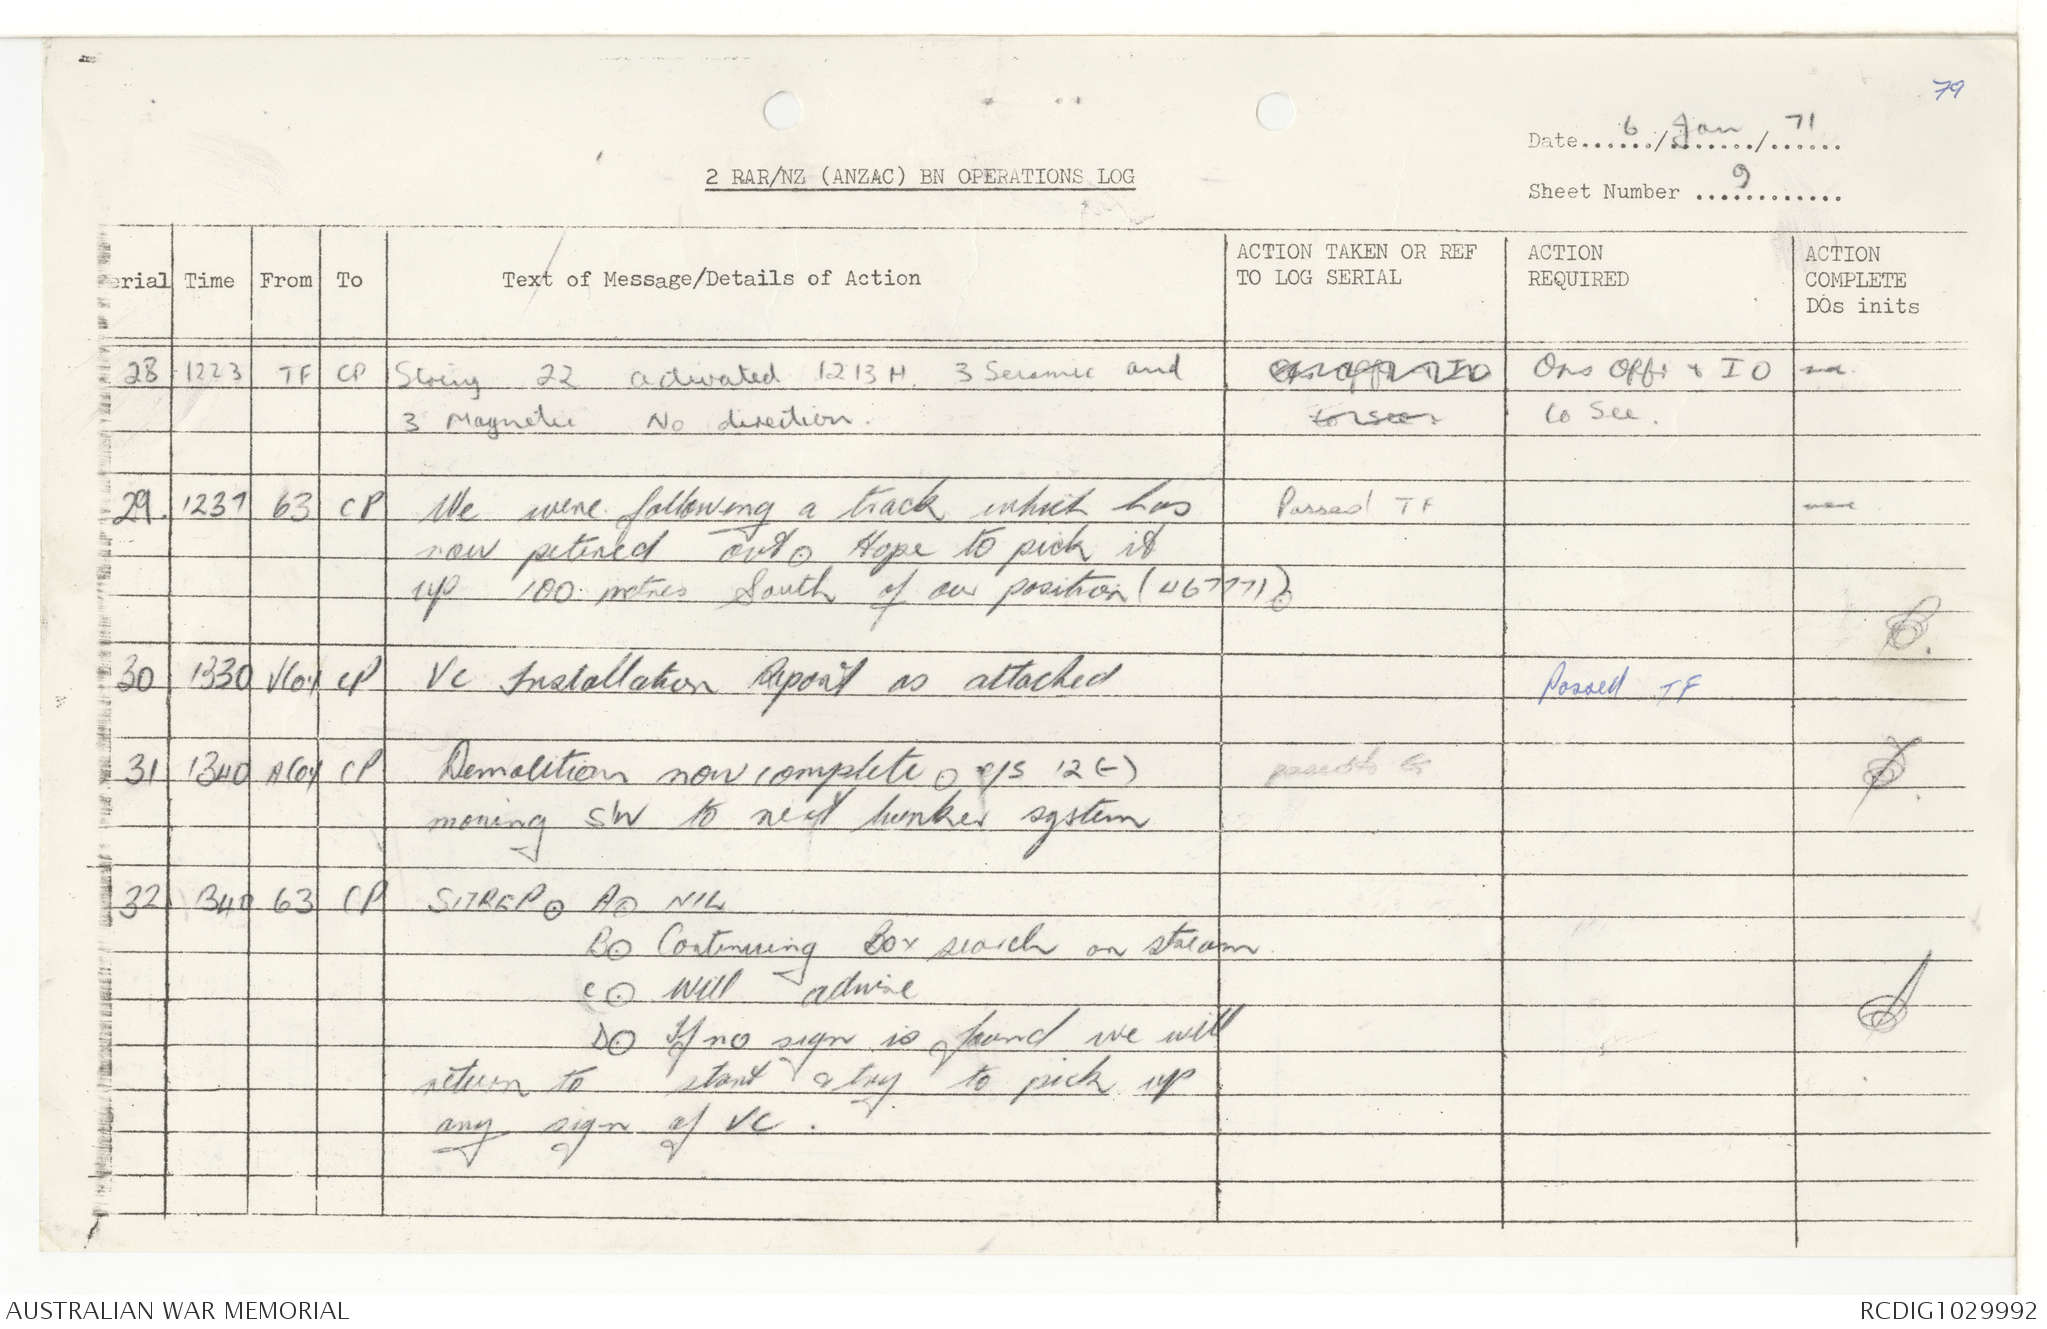 79
Date 6 / Jan / 71
2 RAR/NZ (ANZAC) BN OPERATIONS LOG
Sheet Number 9
erial Time From To Text of Message/Details of Action ACTION TAKEN OR REF TO LOG SERIAL ACTION REQUIRED ACTION COMPLETE DOs inits
28 1223 TF CP String 22 activated 1213H. 3 Seismic and Ops Offr & IO
3 Magnetic No direction. to see to See.
29. 1237 63 CP We were following a track which has Passed TF
now petered out. Hope to pick it
up 100 metres South of our position (467771).
30 1330 VCoy CP VC Installation Report as attached Passed TF
31 1340 ACoy CP Demolition now complete. c/s 12(-)
moving SW to next bunker system
32 1340 63 CP SITREP. A. NIL
B. Continuing Box search on stream.
C. Will advise
D. If no sign is found we will
return to start & try to pick up
any sign of VC.
AUSTRALIAN WAR MEMORIAL
RCDIG1029992